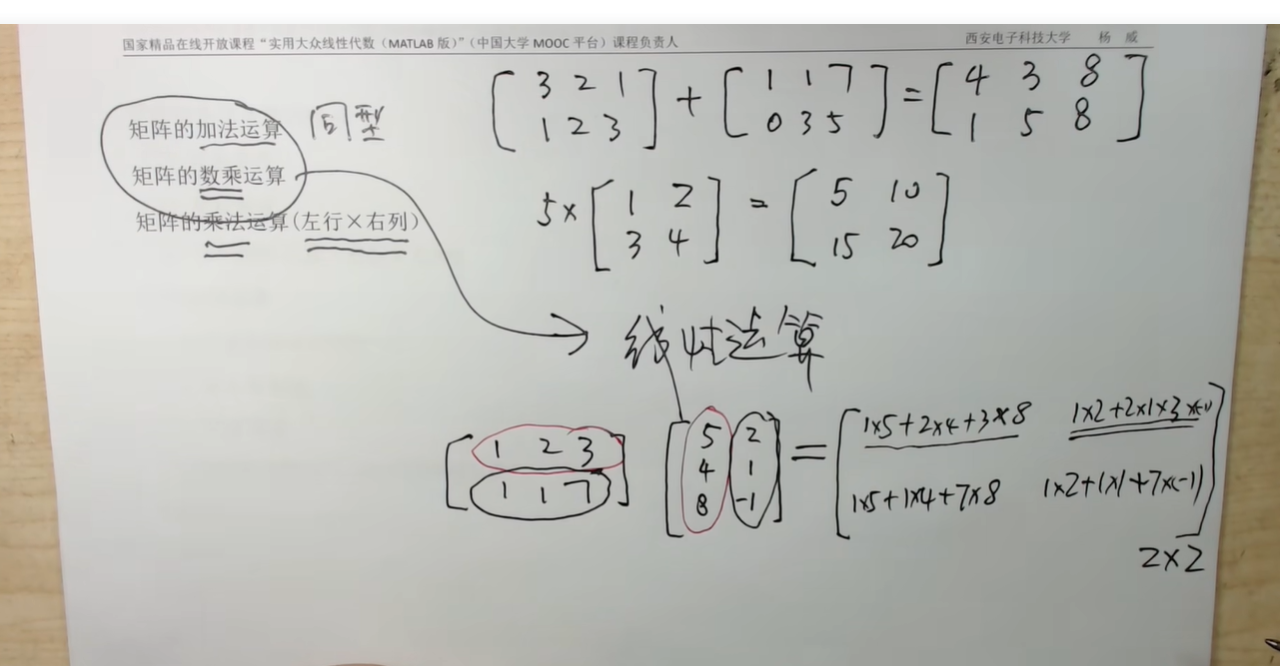 国家精品在线开放课程“实用大众线性代数（MATLAB 版）”（中国大学 MOOC 平台）课程负责人 西安电子科技大学 杨 威
矩阵的加法运算 同型
矩阵的数乘运算
矩阵的乘法运算(左行×右列)
[3 2 1
1 2 3] + [1 1 7
0 3 5] = [4 3 8
1 5 8]
5× [1 2
3 4] = [5 10
15 20]
线性运算
[1 2 3
1 1 7] [5 2
4 1
8 -1] = [1×5+2×4+3×8 1×2+2×1×3×(-1)
1×5+1×4+7×8 1×2+1×1+7×(-1)]
2×2